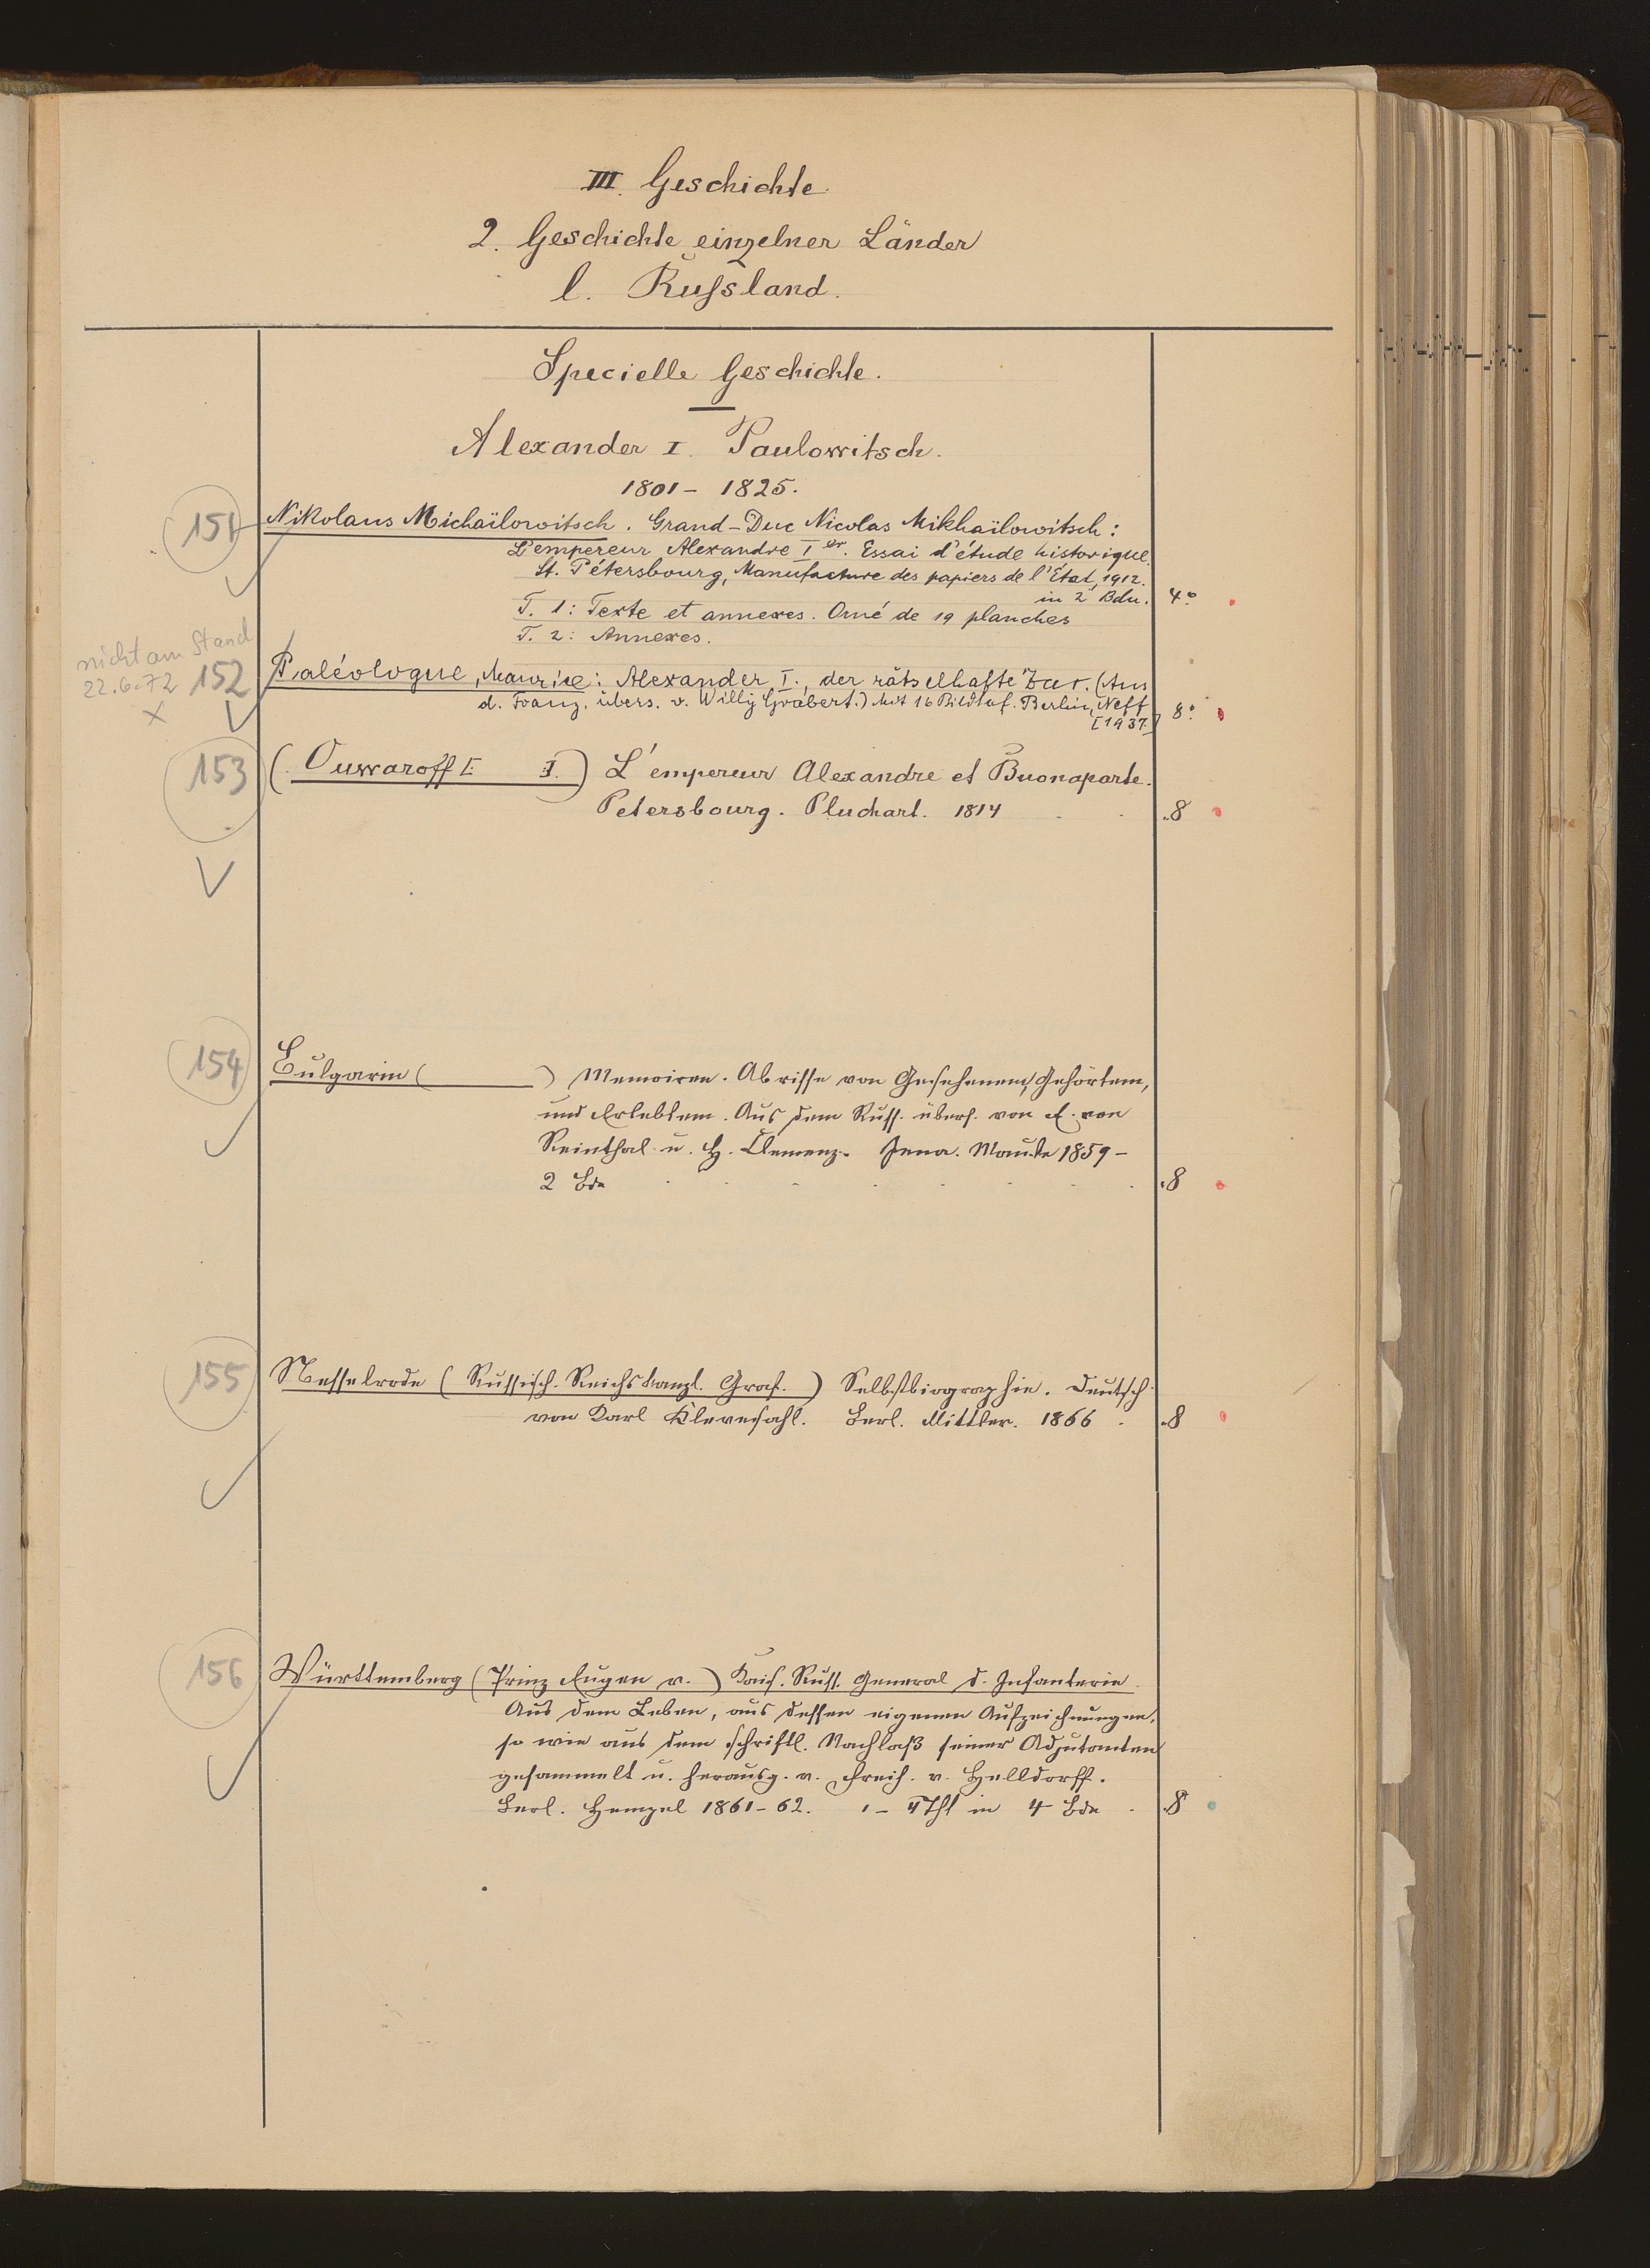 III. Geschichte.
2. Geschichte einzelner Länder
l. Russland.
Specielle Geschichte.
Alexander I. Paulowitsch.
1801 - 1825.
151 Nikolaus Michaïlowitsch. Grand-Duc Nicolas Mikhaïlowitsch:
L'empereur Alexandre Ier. Essai d'étude historique.
St. Pétersbourg, Manufacture des papiers de l'État, 1912.
in 2 Bdn. 4°.
T. 1: Texte et annexes. Orné de 19 planches
T. 2: Annexes.
nicht am Stand
22.6.72 X
152 Paléologue, Maurice: Alexander I., der rätselhafte Zar. (Aus
d. Franz. übers. v. Willy Grabert.) Mit 16 Bildtaf. Berlin, Neff
[1937.] 8°.
153 (Ouwaroff) L'empereur Alexandre et Buonaparte.
Petersbourg. Pluchart. 1814 . . 8
154 Bulgarin ( ) Memoiren. Abrisse von Gesehenem, Gehörtem,
und Erlebtem. Aus dem Russ. übers. von E. von
Reinthal u. H. Clemenz. Jena. Mauke 1859 -
2 Bde . . . . . . . 8
155 Nesselrode (Russisch. Reichskanzl. Graf.) Selbstbiographie. Deutsch
von Karl Klevesahl. Berl. Mittler. 1866 . 8
156 Württemberg (Prinz Eugen v.) Kais. Russ. General d. Infanterie.
Aus dem Leben, aus dessen eigenen Aufzeichnungen,
so wie aus dem schriftl. Nachlaß seiner Adjutanten
gesammelt u. herausg. v. Freih. v. Helldorff.
Berl. Hempel 1861-62. 1-4 Thl in 4 Bde . 8